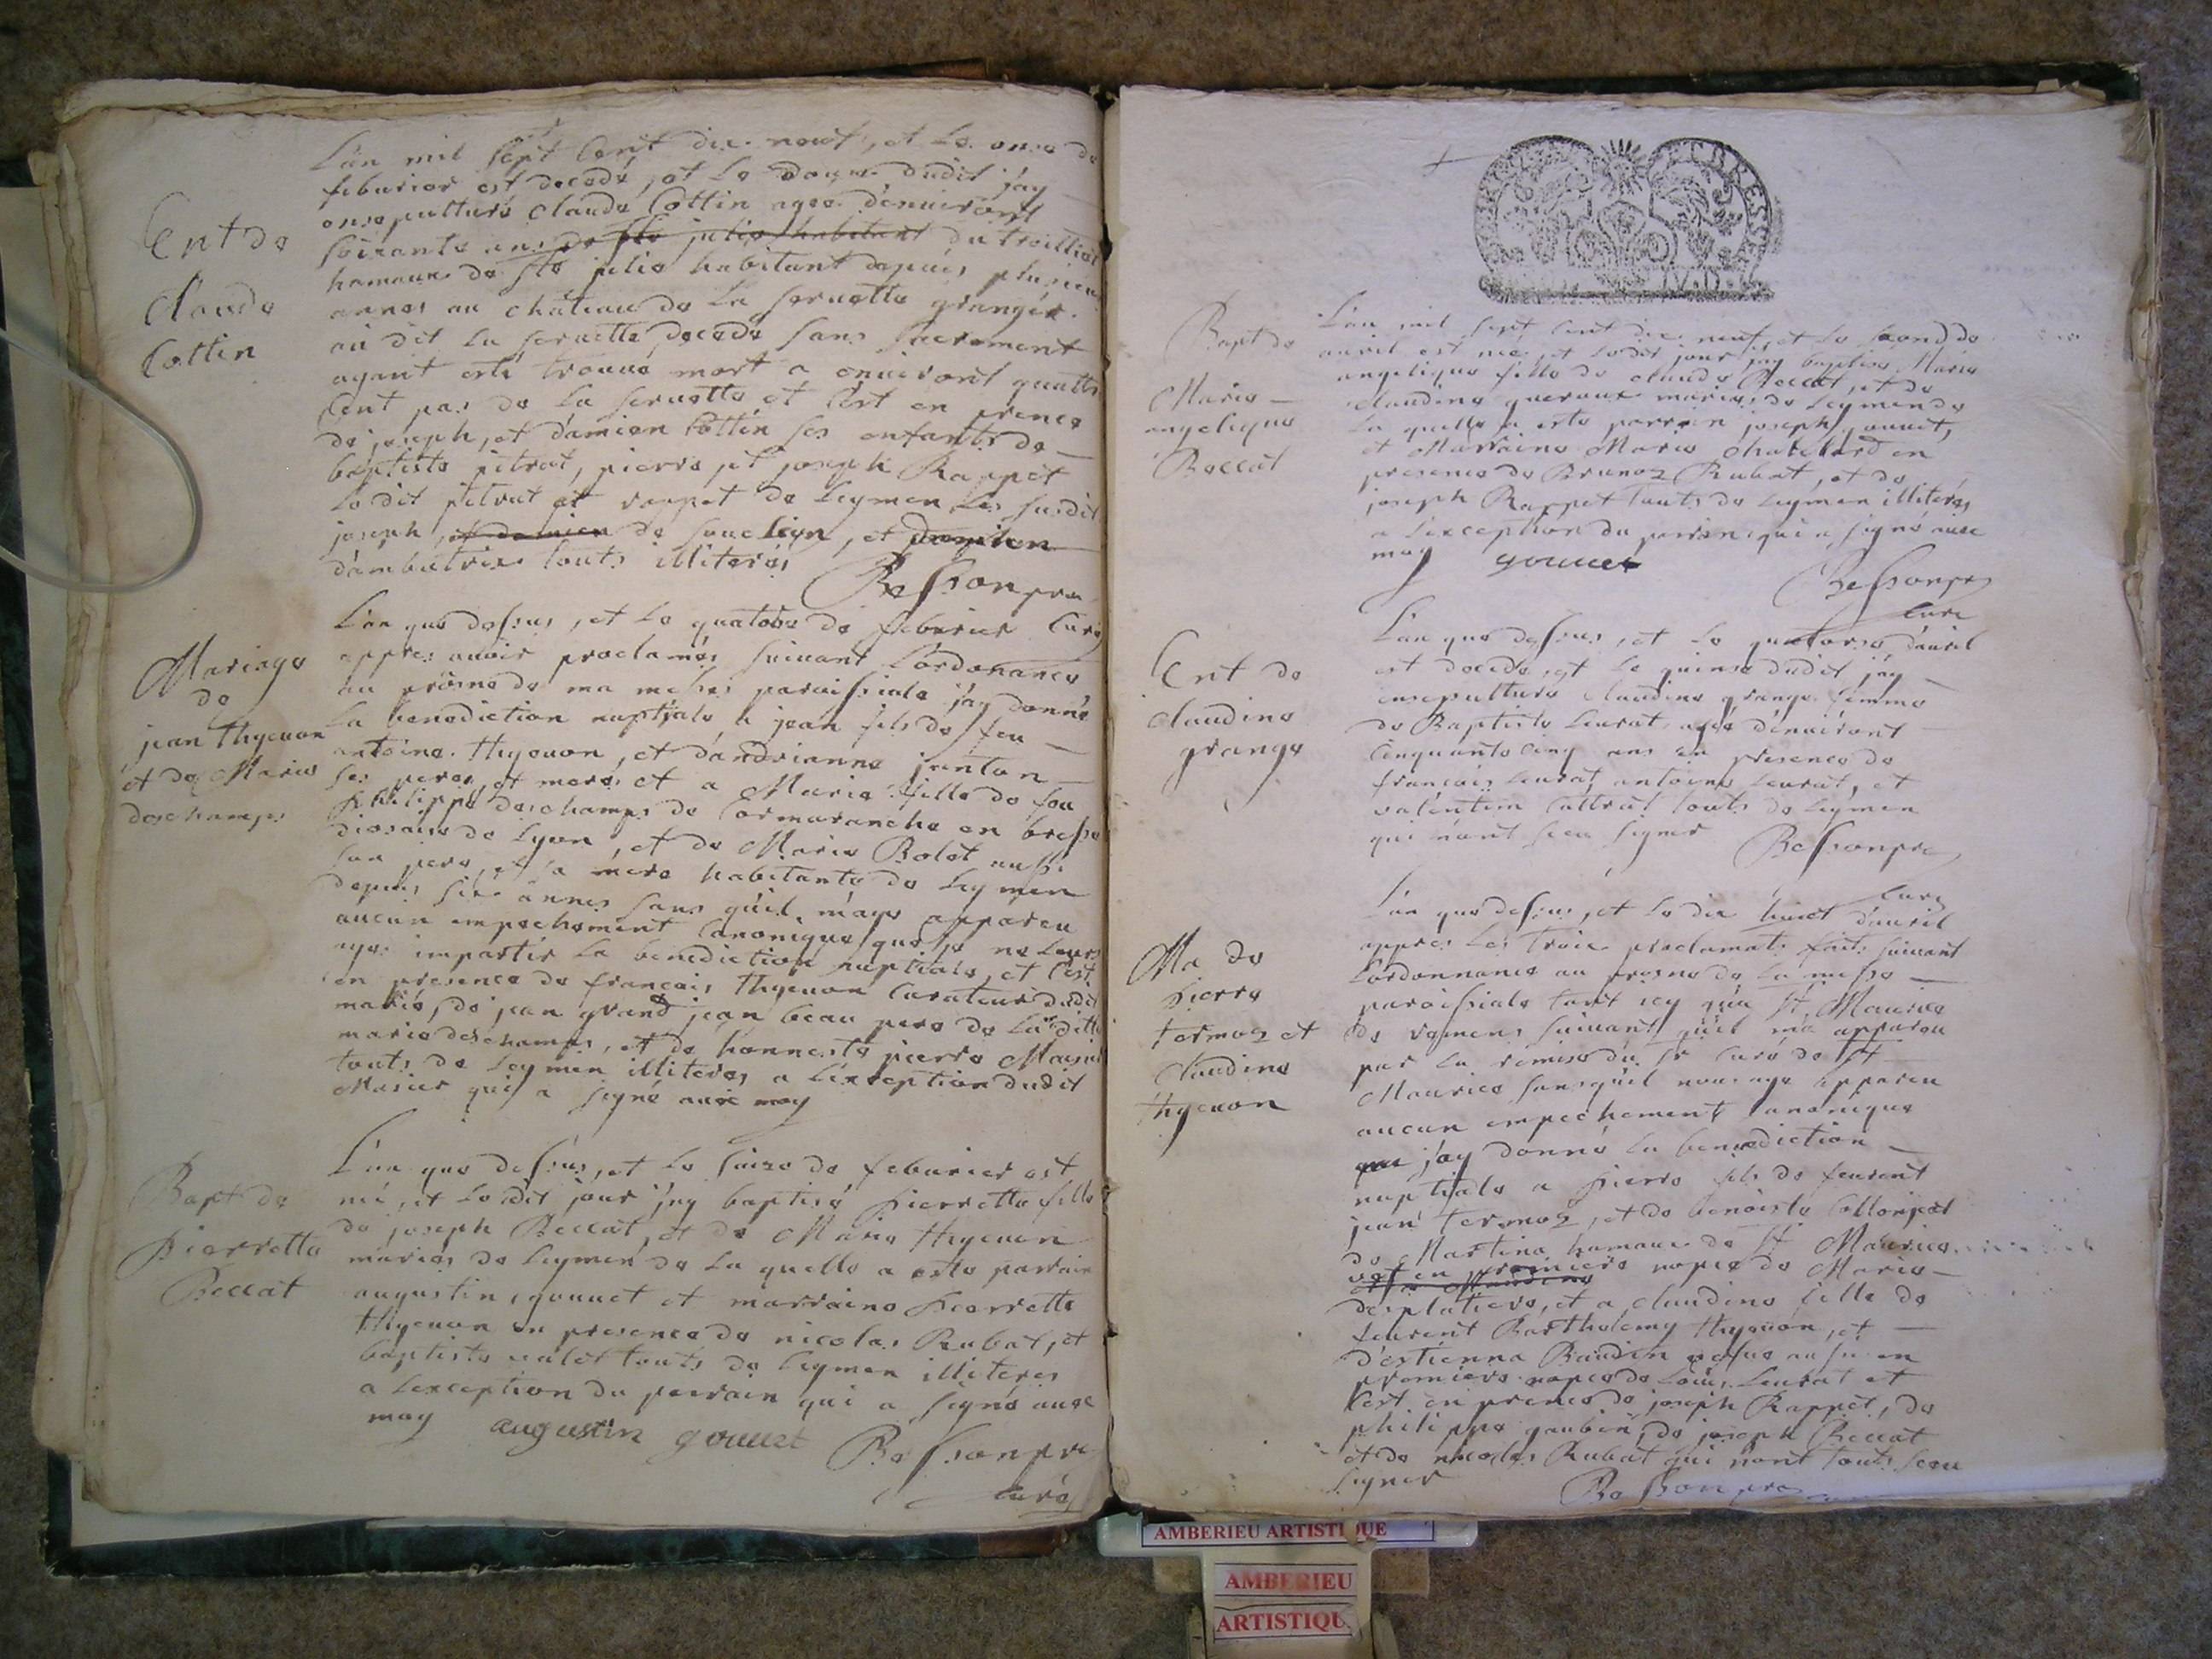 L'an mil sept Cent dix neuf, et Le onse de
feburier est decedé, et Le douze dudit j'ay
ensepulturé Claude Cottin agee d'enuiront
soixante ans de Ste julie habitant du troilliat
hameaux de Ste julie habitant depuis plusieu
annes au château de La seruette granger
au dit La seruette decede sans sacrement
ayant esté trouué mort a enuiront quatts
Cent pas de La seruette et C'est en prence
de joseph, et damien Cottin ses enfants de
baptiste pitrat, pierre, et joseph Rappet
Le dit pitrat et rappet de Leymen Les susdit
joseph, et damien de souclion, et damien
d'ambutrix touts illiterés
Bessonpre
Curé
Ent de
Claude
Cottin
L'an que dessus, et Le quatorse de feburier
appres auoir proclamés suiuant L'ordonance
au prosne de ma messe paroissiale j'ay donné
La benediction nuptjale a jean fils de feu
antoine Thyeuon, et d'andrianne janton
ses peres et meres et a Marie fille de feu
philippe deschamps de Cormaranche en bresse
diosaise de Lyon, et de Marie Bolet aussi
son pere, et sa mère habitante de Leymen
depuis six annes sans qu'il m'aye appareu
aucun empechement Canonique que je ne Leurs
aye impartir La benediction nuptiale, et C'est
en presence de francois Thyeuon Curateur dudit
marié, de jean grand jean beau pere de La ditte
marie deschamps, et de honneste pierre Masuer
touts de Leymen illiteres a L'exception dudit
Masuer qui a signé auec moy
Mariage
de
jean Thyeuon
et de Marie
deschamps
L'an que dessus, et Le seize de feburier est
né, et Le dit jour j'ay baptisé pierrette fille
de joseph Beccat, et de Marie Thyeuon
mariés de Leymen de La quelle a esté parrain
augustin gouuet et marraine pierrette
Thyeuon en presence de nicolas Rubat, et
baptiste valet touts de Leymen illiteres
a L'exception du parrain qui a signé auec
moy augustin gouuet
Bessonpre
Curé
Bapt de
pierrette
Beccat
L'an mil sept Cent dix neuf, et Le second de
auril est née, et Ledit jour j'ay baptise Marie
angelique fille de claude Beccat, et de
claudine queroux maries de Leymen de
La quelle a este parrain joseph gouuet,
et Marraine Marie chatelard en
presence de Brunoz Rubat, et de
joseph Rappet touts de Leymen illiterés
a L'exception du parrin qui a signé auec
moy gouuet
Bessonpre
Curé
Bapt de
Marie
angelique
Beccat
L'an que dessus, et Le quatorse d'auril
est decede, et Le quinse dudit j'ay
ensepulture claudine grange femme
de Baptiste Leurat agée d'enuiront
Cinquante Cinq ans en presence de
francois Leurat, antoine Leurat, et
valentin Cattrat touts de Leymen
qui n'ont sceu signer
Bessonpre
Curé
Ent de
claudine
grange
L'an que dessus, et Le dix huict d'auril
appres Les trois proclamats faits suiuant
L'ordonnance au prosne de La messe
paroissiale tant icy qu'a St Maurice
de remens suiuant qu'il m'a appareu
par La remise du Sr Curé de St
Maurice sans qu'il nous aye appareu
aucun empechement Canonique
que j'ay donné La benediction
nuptiale a pierre fils de feurent
jean Termoz, et de benoiste Collonpet
de Martina hameau de St Maurice
vef en premiere nopce de Marie
desplatiere, et a claudine fille de
feurent Barthelemy Thyeuon, et
d'estienna Baudin vesfue aussi en
premiere nopce de Loüis Leurat et
C'est en prence de joseph Rappet, de
philippe gaubin, de joseph Beccat
et de nicolas Rubat qui n'ont touts sceu
signer
Bessonpre
Ma de
pierre
termoz et
claudine
thyeuon
AMBERIEU ARTISTIQUE
AMBERIEU
ARTISTIQU